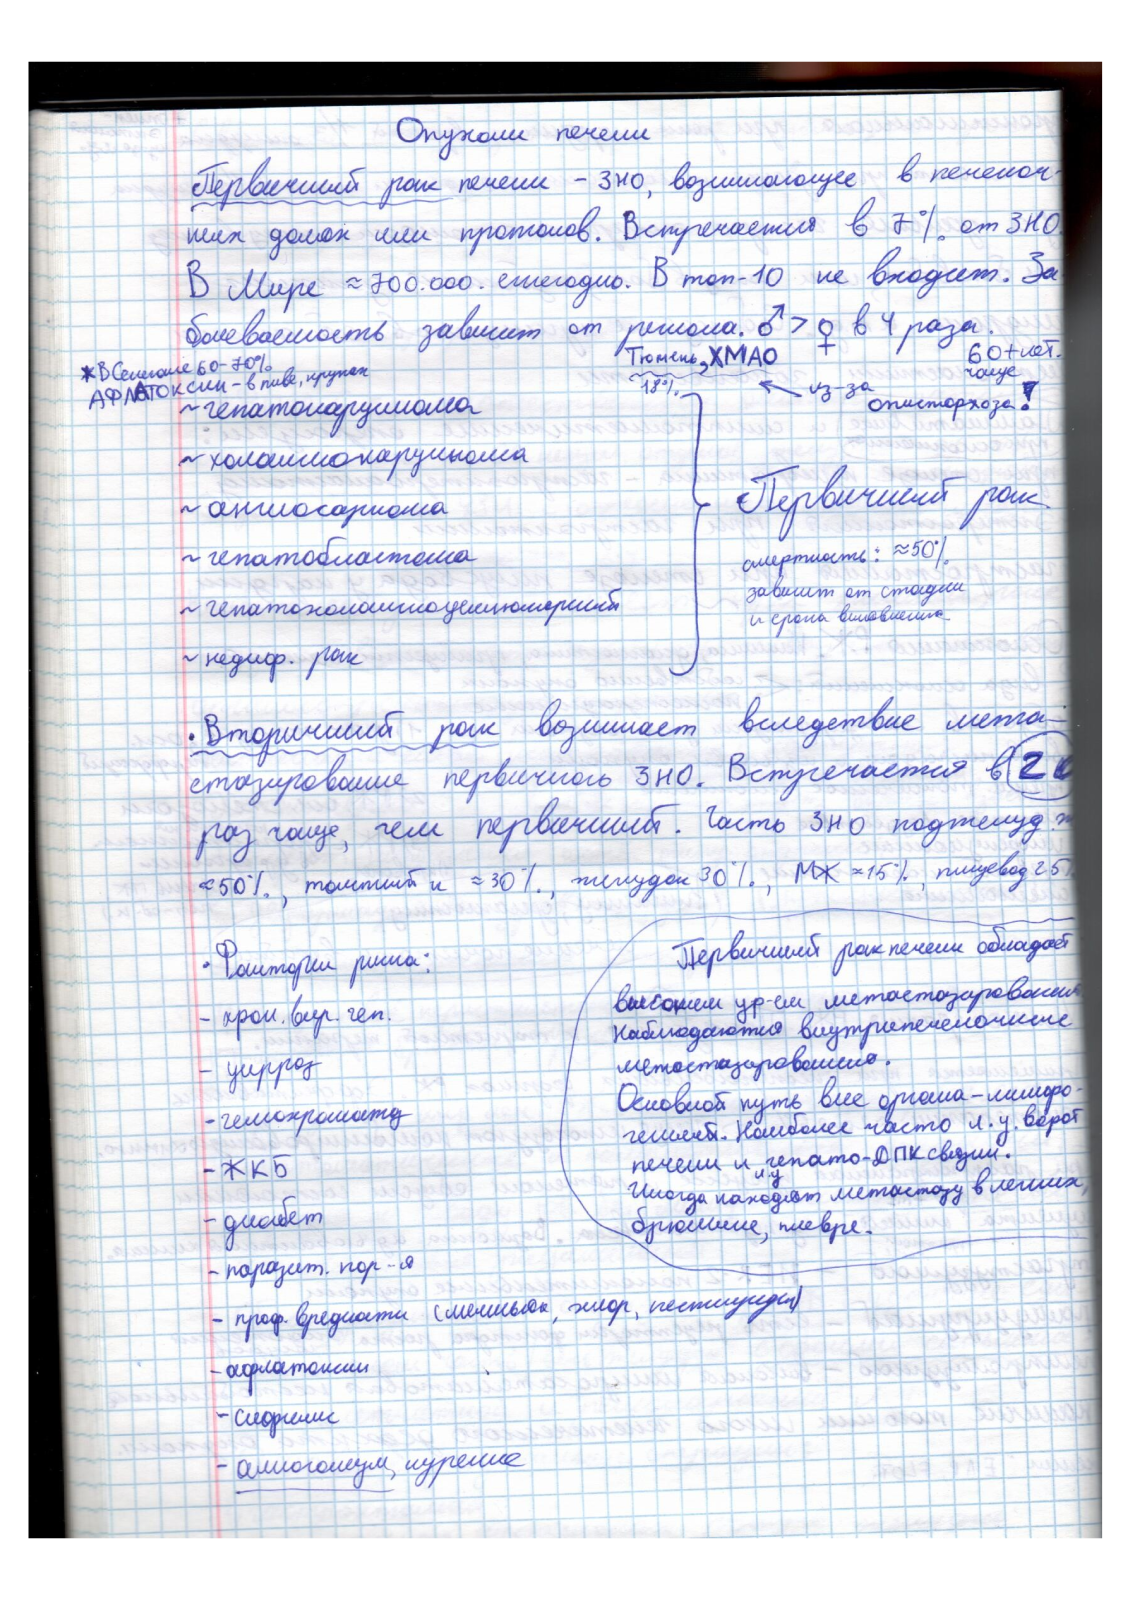 Опухоли печени
Первичный рак печени – ЗНО, возникающее в печеноч-
ных долях или протоков. Встречается в 7% от ЗНО.
В Мире ≈ 700.000. ежегодно. В топ-10 не входит. За
болеваемость зависит от региона. ♂ > ♀ в 4 раза.
Тюмень, ХМАО
18%.
60+ лет.
чаще
из-за
описторхоза!
* В Сенегале 60-70%
АФЛАТОКСИН - в пиве, крупах
~ гепатокарцинома
~ холангиокарцинома
~ ангиосаркома
~ гепатобластома
~ гепатохолангиоцеллюлярный
~ недиф. рак
Первичный рак
смертность: ≈50%
зависит от стадии
и срока выявления
• Вторичный рак возникает вследствие мета-
стазирование первичного ЗНО. Встречается в
раз чаще, чем первичный. Часть ЗНО поджелуд.
≈50%, толстый к ≈30%., желудок 30%., МЖ ≈15%, пищевод 25
• Факторы риска:
- хрон. вир. геп.
- цирроз
- гемохроматоз
- ЖКБ
- диабет
- паразит. пор-я
- проф. вредности (мышьяк, хлор, пестициды)
- афлатоксин
- сифилис
- алкоголизм, курение
Первичный рак печени обладает
высоким ур-ем метастазирования.
Наблюдаются внутрипеченочные
метастазирования.
Основной путь вне органа – лимфо-
генный. Наиболее часто л.у. ворот
печени и л.у гепато-ДПК связки.
Иногда находят метастазы в легких,
брюшине, плевре.